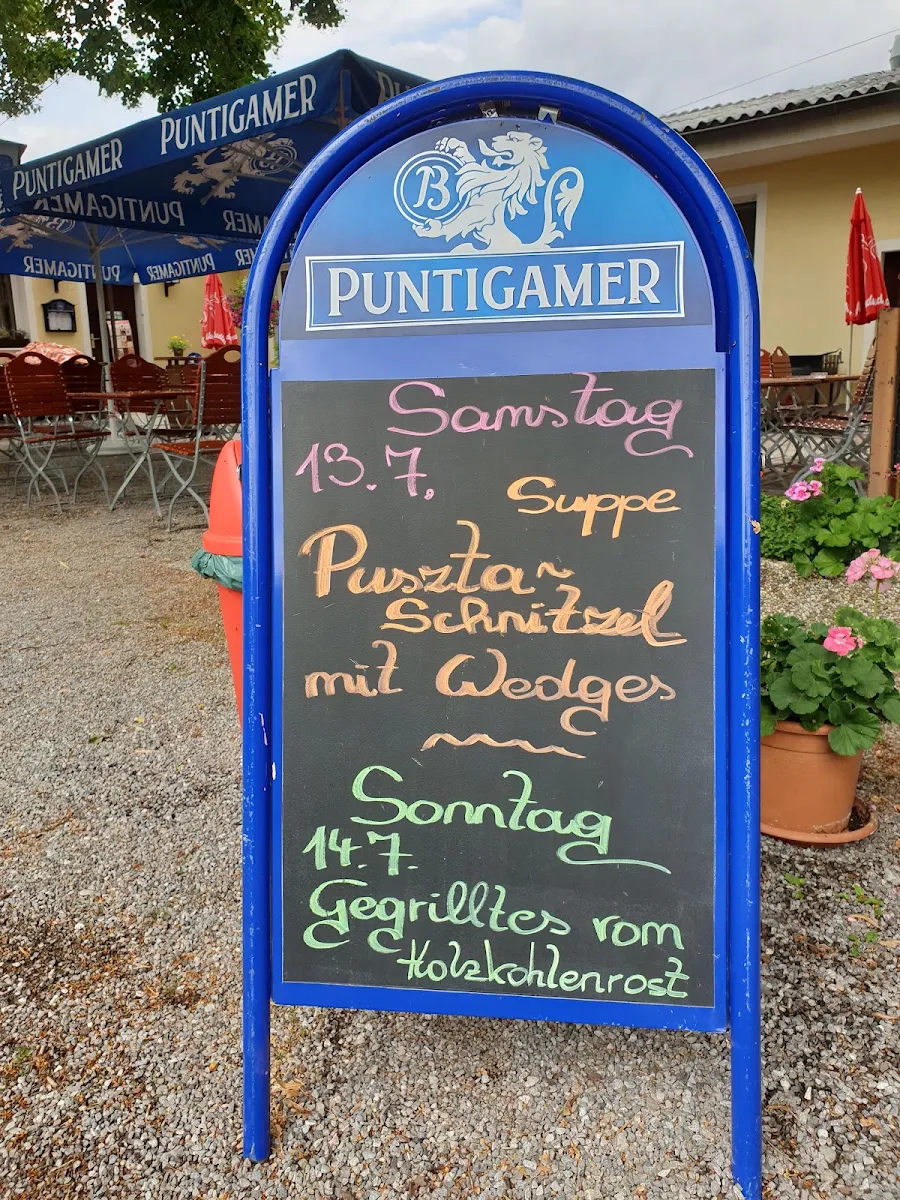 PUNTIGAMER
PUNTIGAMER
PUNTIGAMER
PUNTIGAMER
PUNTIGAMER
PUNTIGAMER
PUNTIGAMER
B
PUNTIGAMER
Samstag
13.7.
Suppe
Puszta~
Schnitzel
mit Wedges
Sonntag
14.7.
Gegrilltes vom
Holzkohlenrost